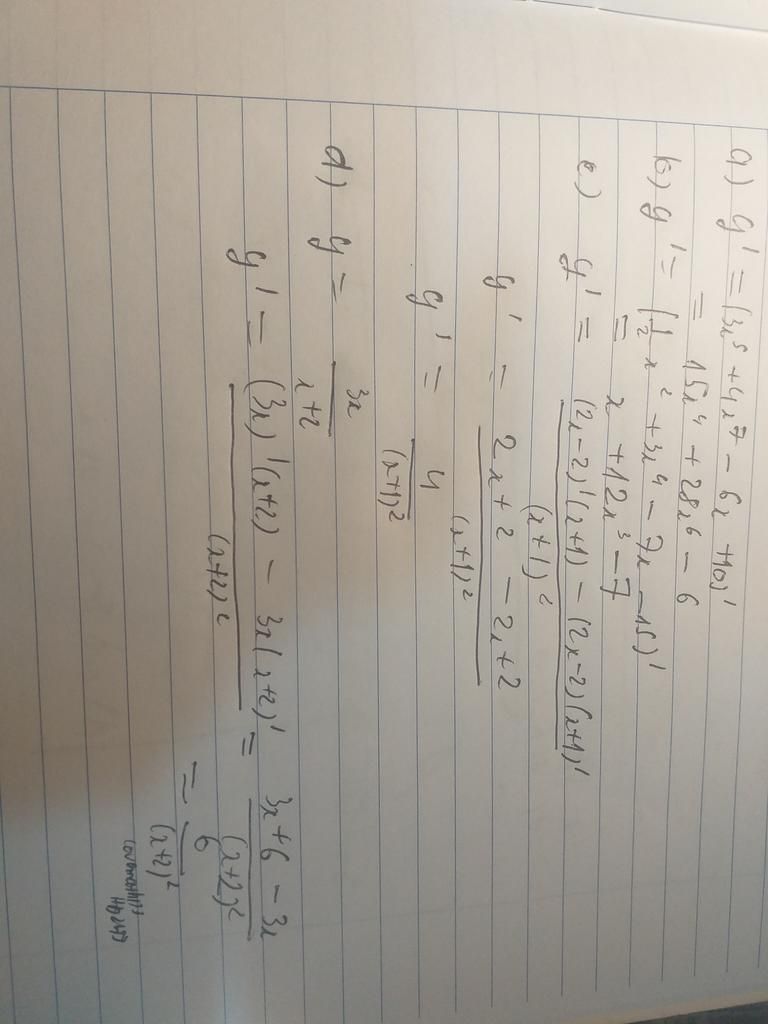 a) y' = (3x⁵ + 4x⁷ - 6x + 10)'
= 15x⁴ + 28x⁶ - 6
b) y' = (1/2 x² + 3x⁴ - 7x - 15)'
= x + 12x³ - 7
c) y' = (2x-2)'(x+1) - (2x-2)(x+1)' / (x+1)²
y' = 2x+2 - 2x+2 / (x+1)²
y' = 4 / (x+1)²
d) y = 3x / x+2
y' = (3x)'(x+2) - 3x(x+2)' / (x+2)² = 3x+6 - 3x / (x+2)²
= 6 / (x+2)²